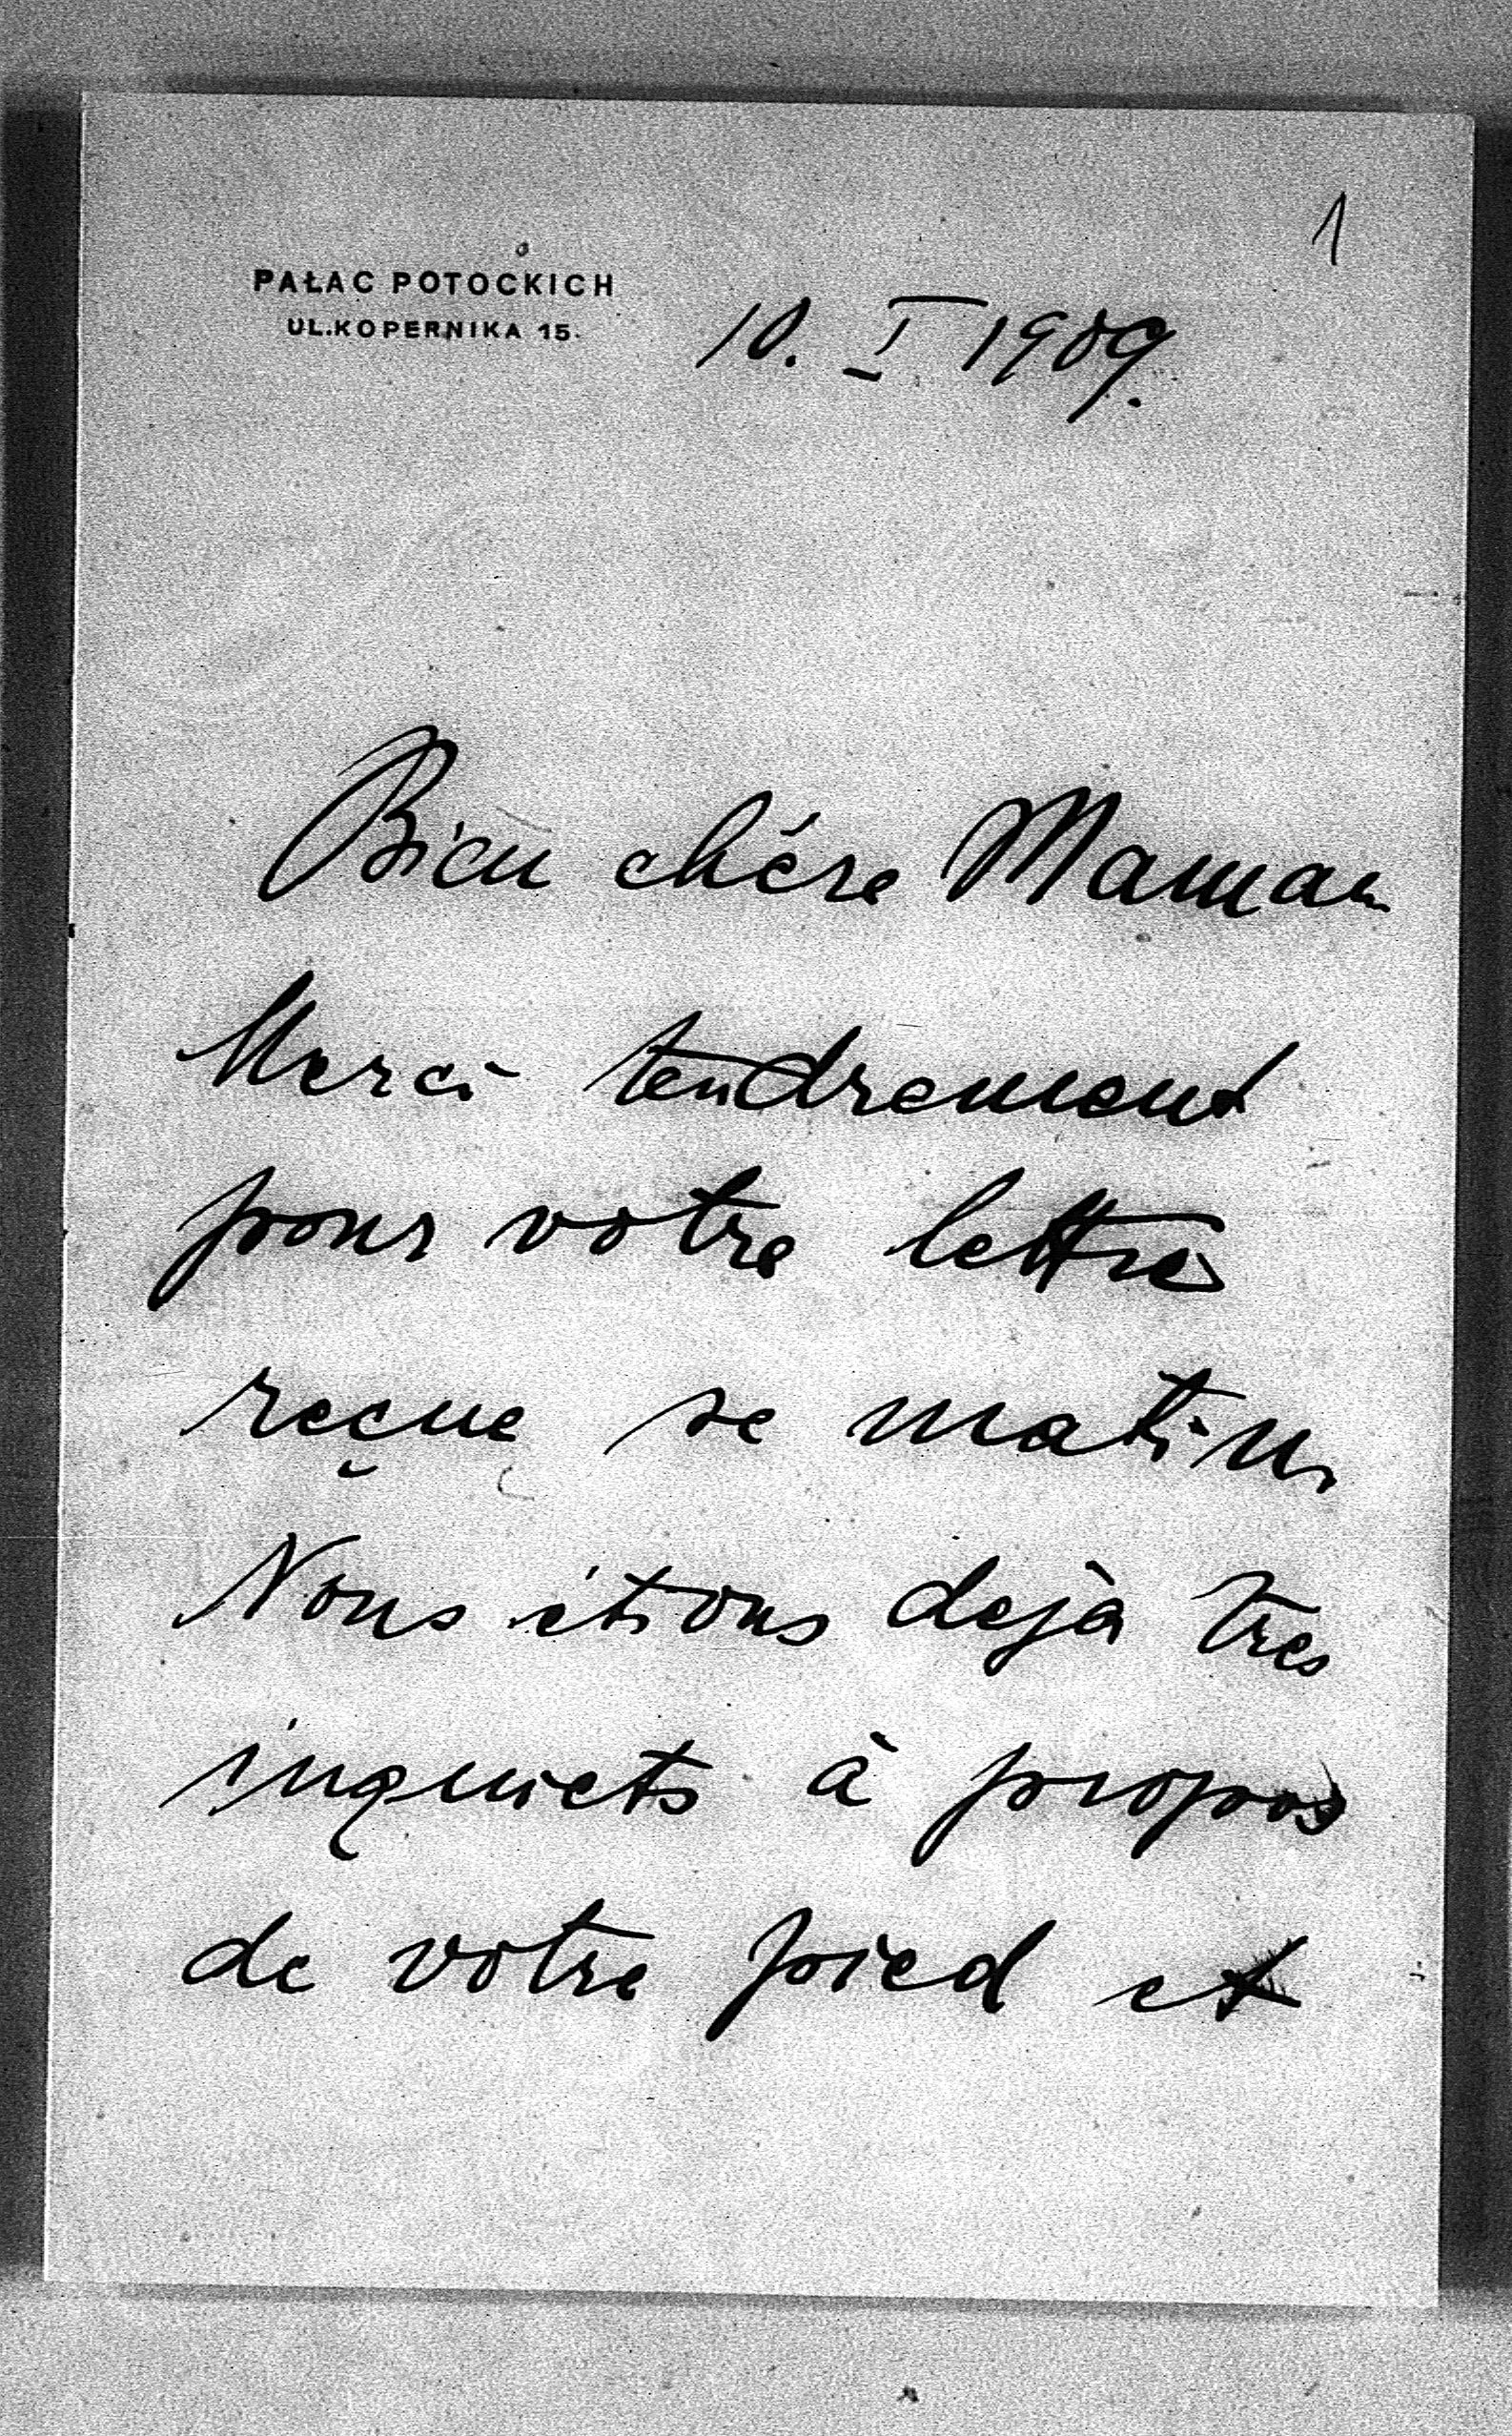 1
PAŁAC POTOCKICH
UL.KOPERNIKA 15.
10. I 1909.
Bien chére Maman
Merci tendrement
pour votre lettre
reçue se matin,
Nous étions dejà tres
inquiets à propos
de votre pied et